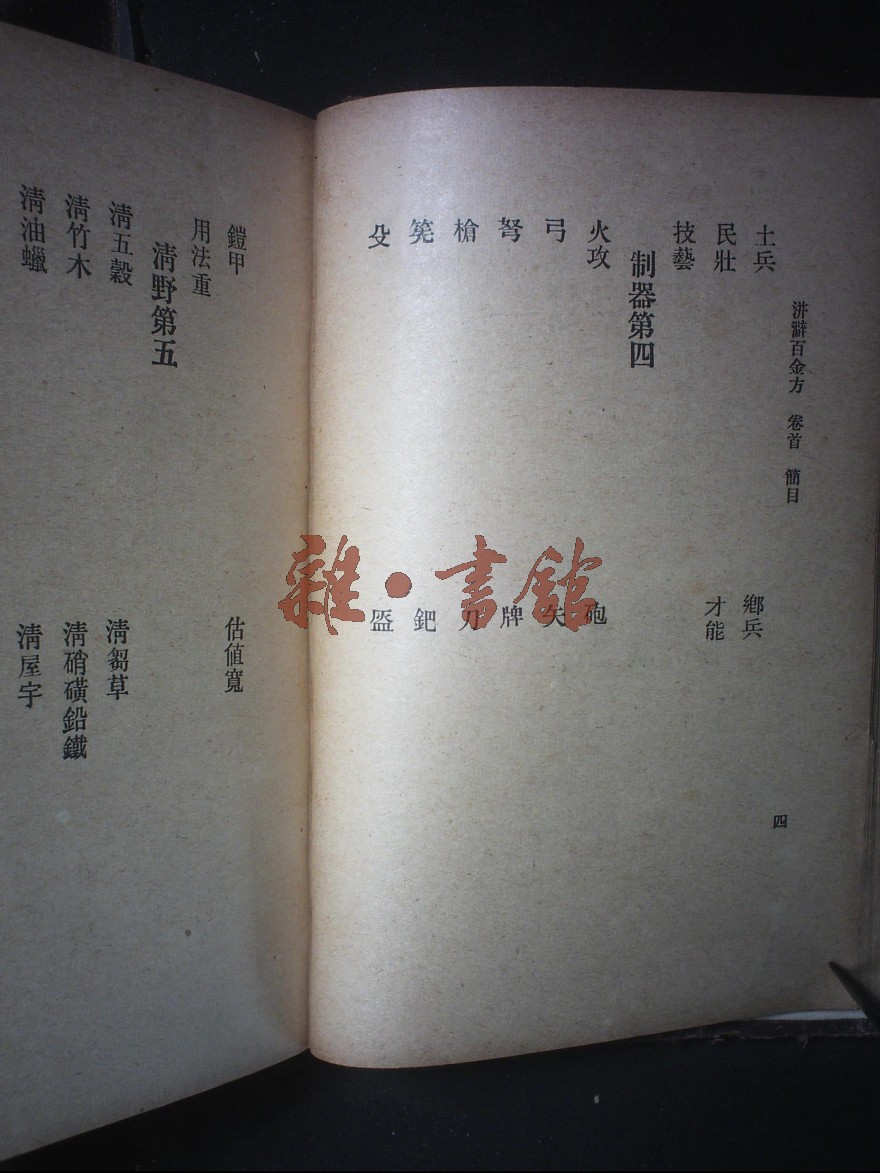 洴澼百金方 卷首 簡目
四
土兵
鄉兵
民壯
才能
技藝
制器第四
火攻
砲
弓
矢
弩
牌
槍
刀
筅
鈀
殳
盔
鎧甲
估值寬
用法重
清野第五
清五穀
清芻草
清竹木
清硝磺鉛鐵
清油蠟
清屋宇
雜·書館